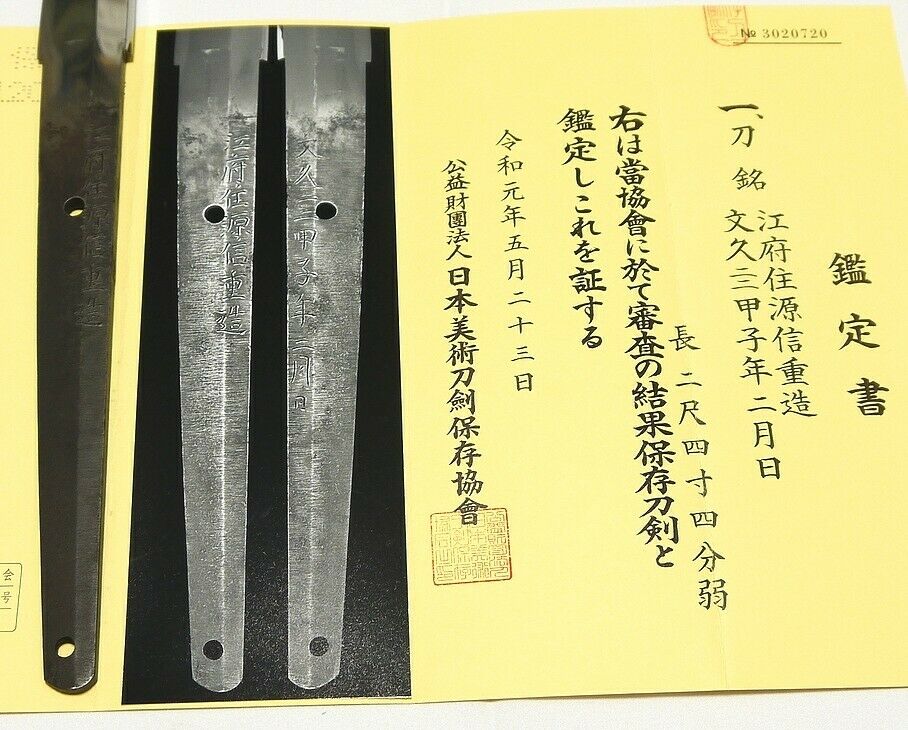 № 3020720
鑑定書
一、刀 銘 江府住源信重造
文久三甲子年二月日
長 二尺四寸四分弱
右は當協會に於て審査の結果保存刀剣と
鑑定しこれを証する
令和元年五月二十三日
公益財團法人日本美術刀劍保存協會
文久三甲子年二月日
江府住源信重造
江府住源信重造
会
号